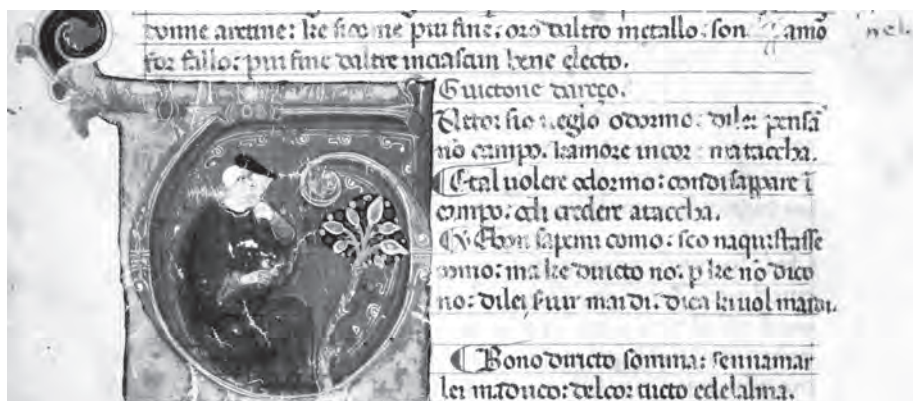 donne aretine: ke sicome piu fine: oro daltro metallo. son amo nel.
for fallo: piu fine daltre inciascun bene electo.
Guictone dareço.
tictor sio ueglo odormo: dilei pensã
nõ campo. kamore incor mataccha.
Etal uolere odormo: comdisappare ĩ
campo: odi credere ataccha.
Ebon sapemi como: seo naquistasse
omo: ma ke duicto no: p ke nõ dico
no: dilei seruir maidi. dica ki uol maidi.
Bono duicto somma: sennamar
lei maduco: delcor tucto edelalma.